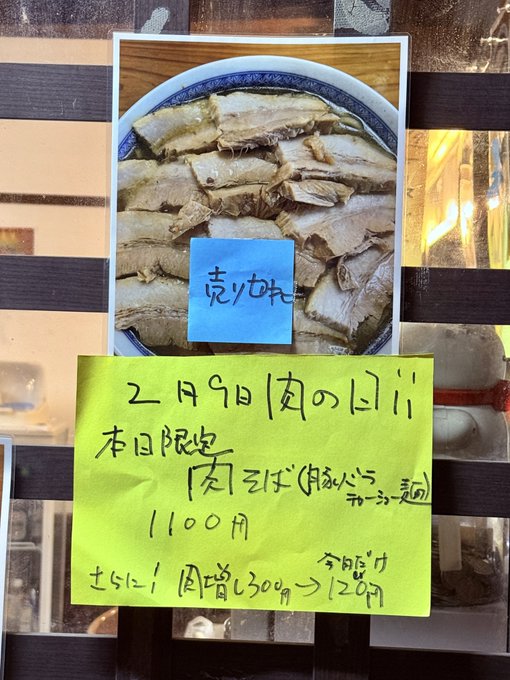 売り切れ
2月9日肉の日!!
本日限定
肉そば(豚バラ
チャーシュー麺)
1100円
さらに! 肉増し300円→120円
今日だけ